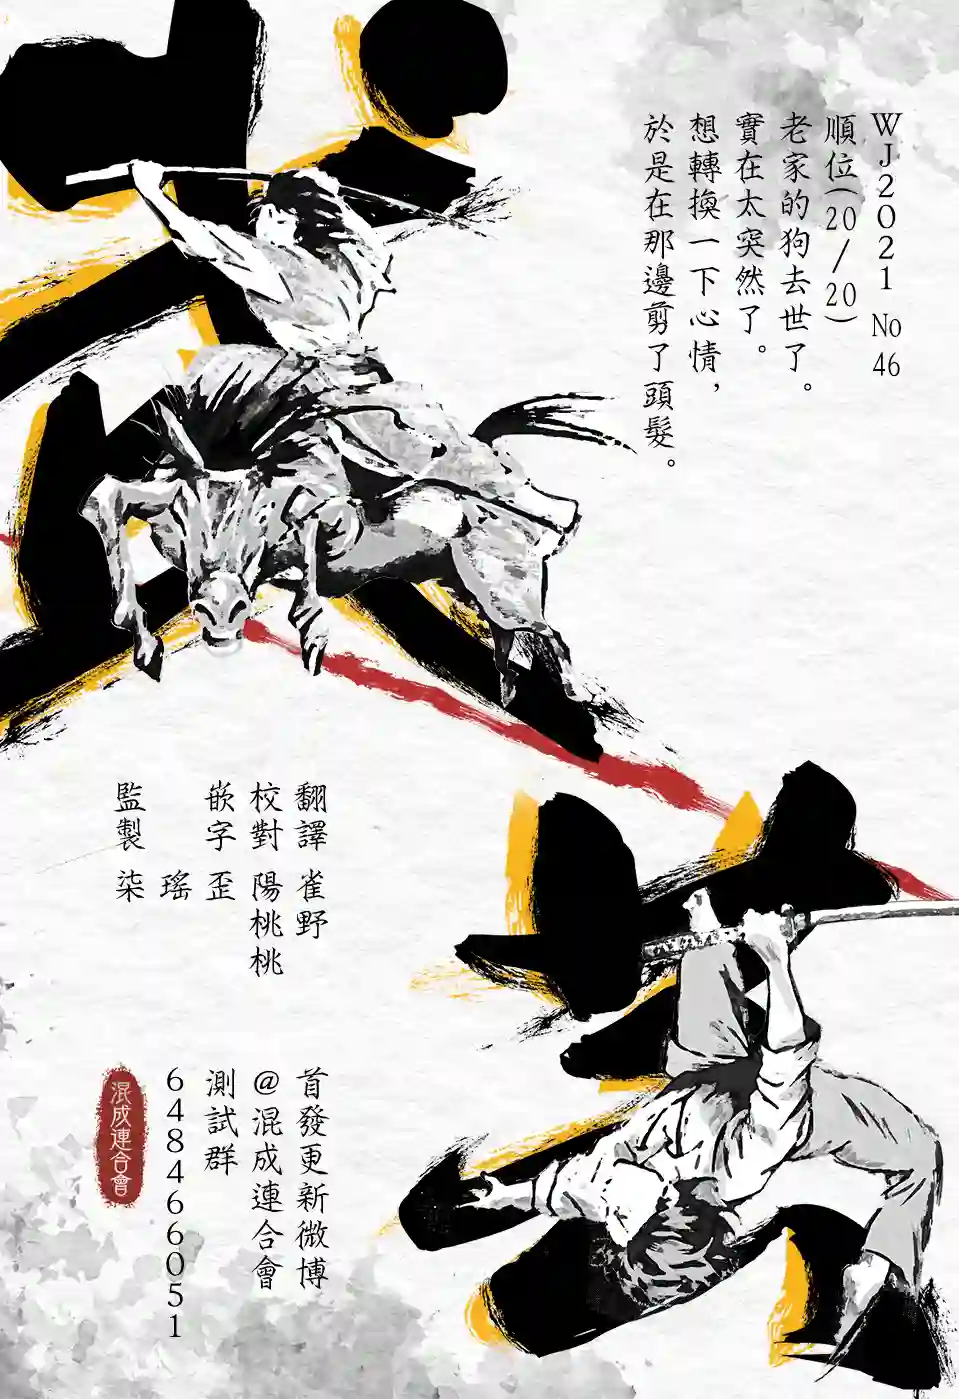 WJ2021 No46
順位(20/20)
老家的狗去世了。
實在太突然了。
想轉換一下心情,
於是在那邊剪了頭髮。
翻譯 雀野
校對 陽桃桃
嵌字 歪
瑤
監製 柒
首發更新微博
@混成連合會
測試群
648466051
混成連合會